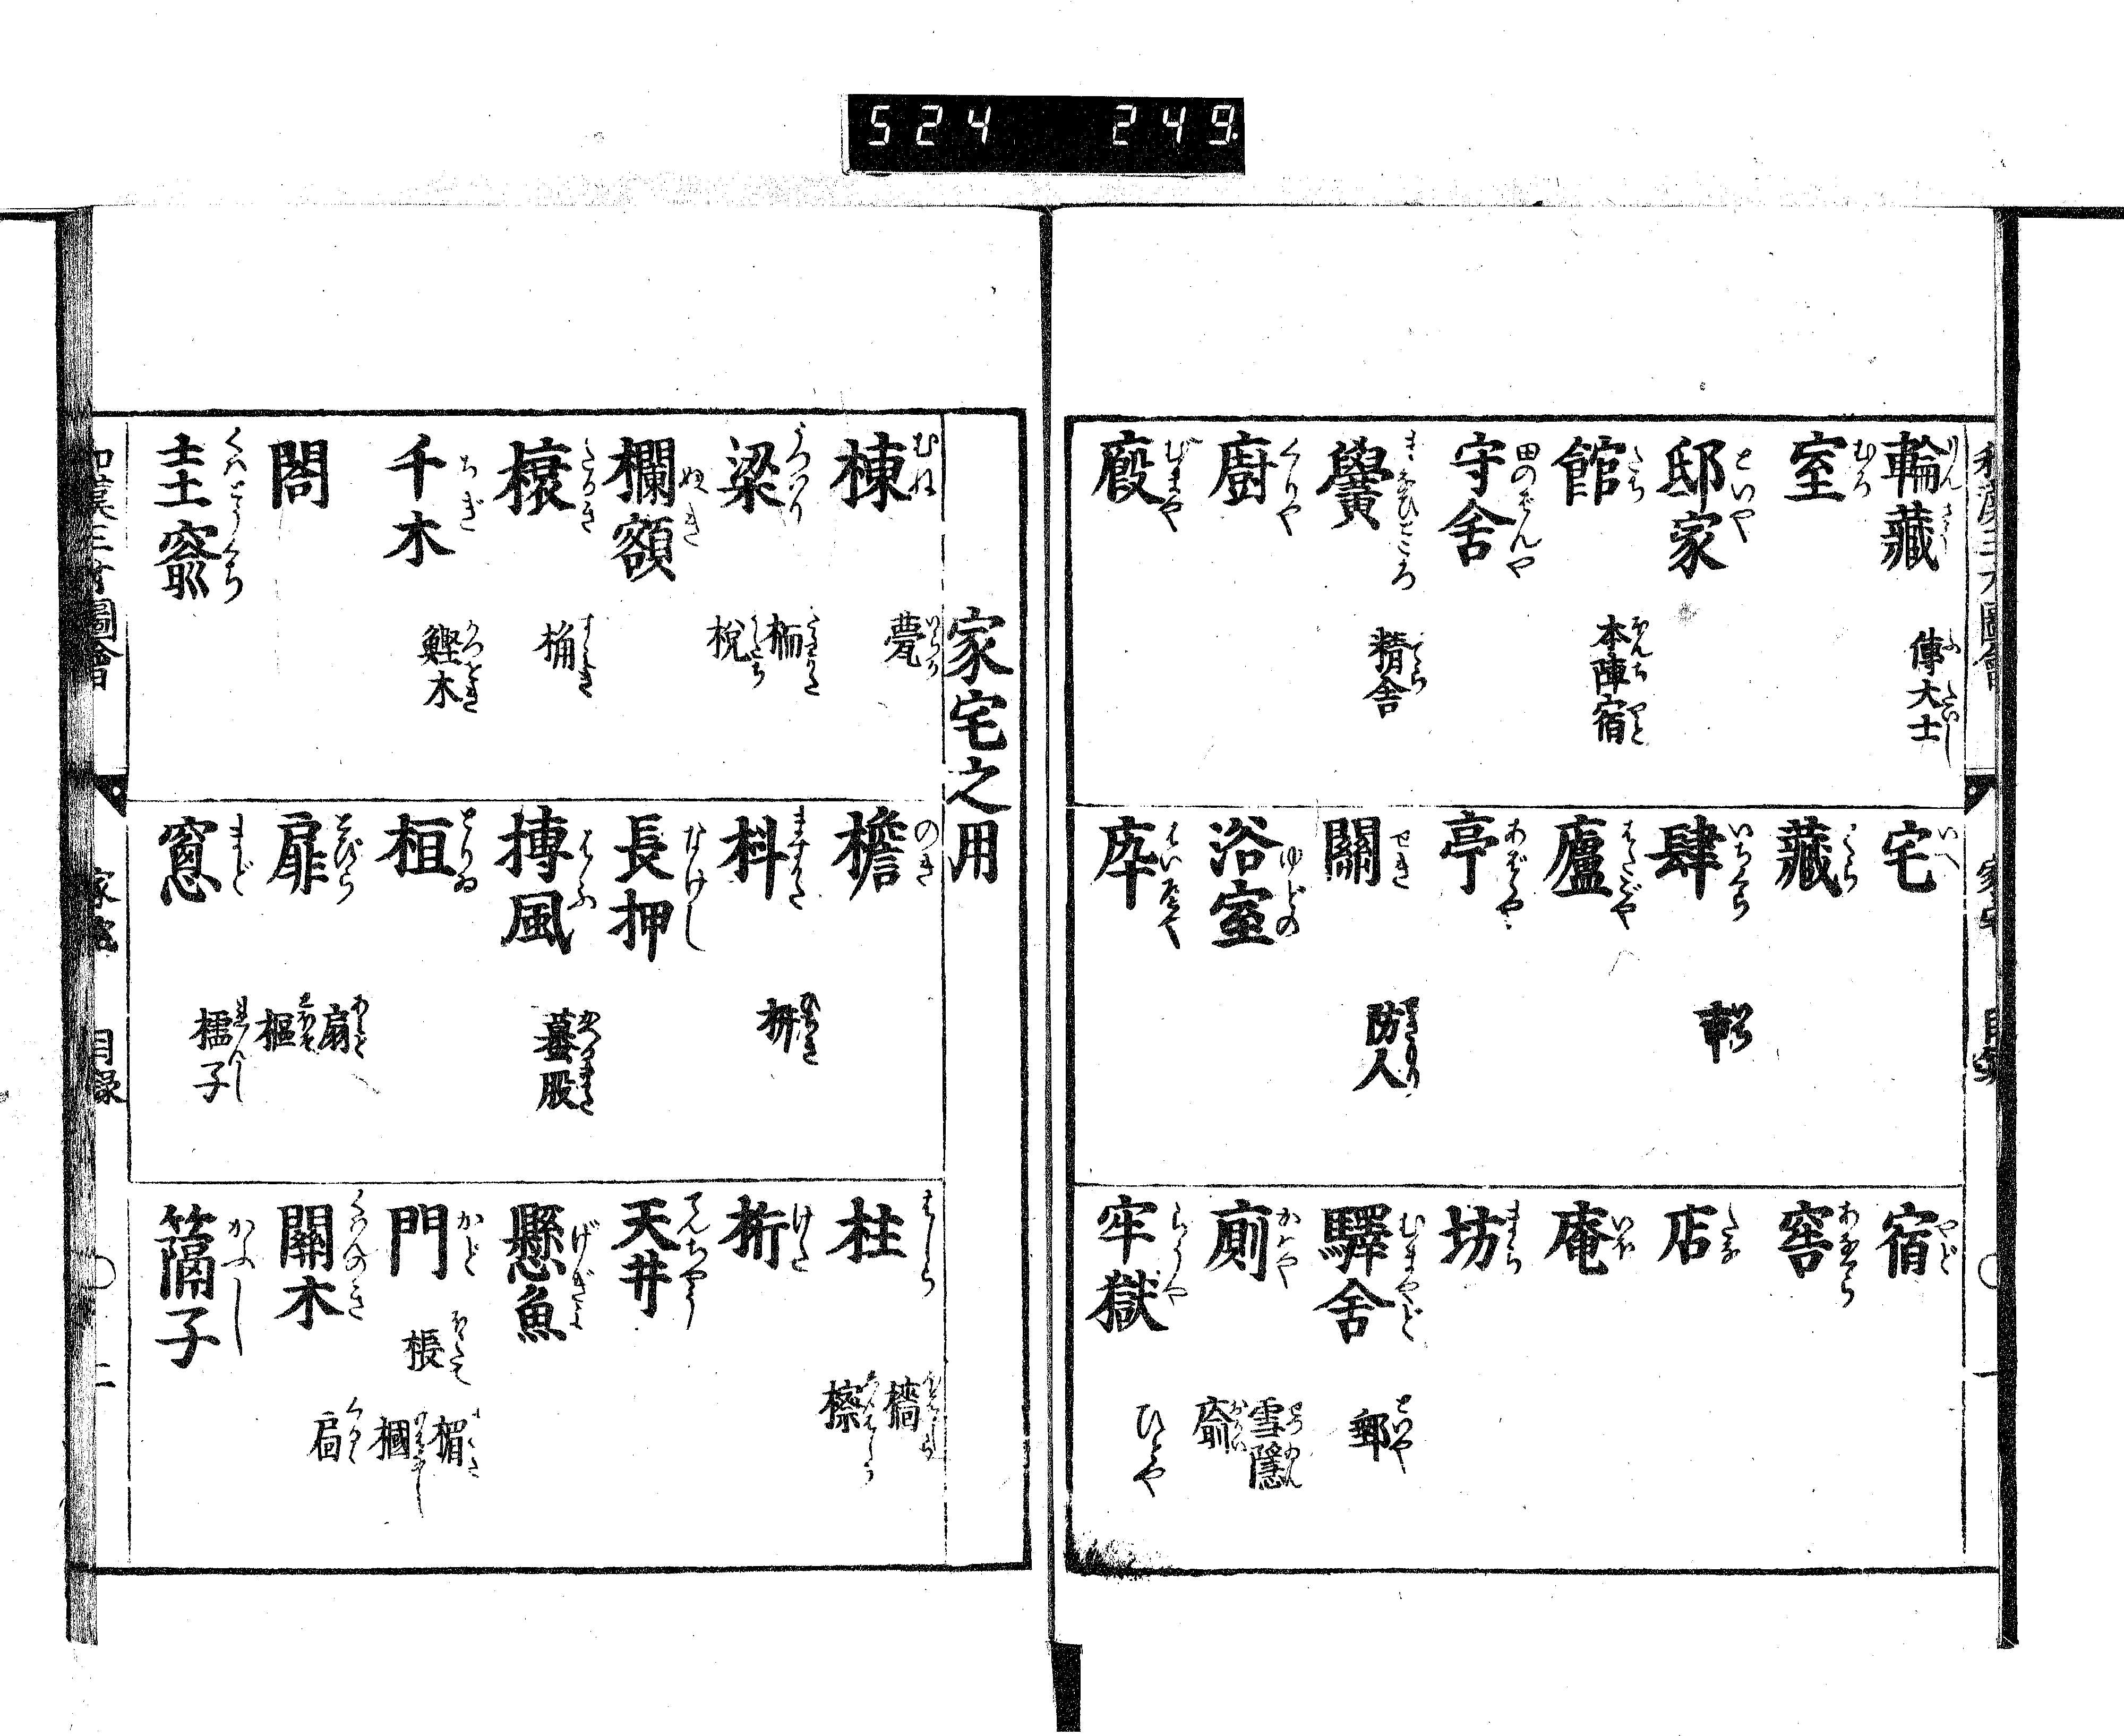 524 249
輪藏 りんざう 傳大士 ふだいし
宅 いへ
宿 やど
室 むろ
藏 くら
窖 あなぐら
邸家 といや
肆 いちぐら 市 いち
店 たな
館 たち 本陣宿 ほんぢんやど
廬 はたごや
庵 いほ
守舍 田のばんや
亭 あばらや
坊 まち
黌 まなびどころ 精舍 てら
關 せき 防人 さきもり
驛舍 むまやど 郵 といや
廚 くりや
浴室 ゆどの
廁 かはや 雪隱 せついん
廄 むまや
牢獄 らうや ひとや
家宅 目録 一
家宅之用
棟 むね 甍 いらか
檐 のき
柱 はしら
梁 うつばり 栭 梲 うだち
枓 ますがた 枅 ひぢき
桁 けた
欄額 ぬき
長押 なげし
天井 てんちやう
榱 たるき 桷 すみき
摶風 はふ 蟇股 かへるまた
懸魚 げぎよ
千木 ちぎ 鰹木 かつをぎ
桓 とりゐ
門 かど 棖 ほこたて
閤
扉 とびら 扇 樞
關木 くわんのき 扃
圭窬 くぐりぐち
窓 まど 櫺子 れんじ
篇子 かうし
和漢三才圖會 家宅 目録 二